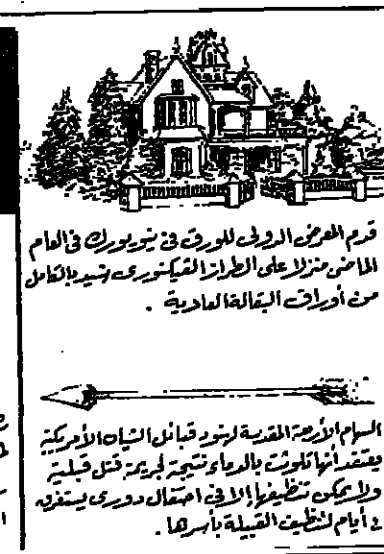 قدم المعرض الدولى للورق فى نيويورك فى العام
الماضى منزلا على الطراز الڤيكتورى شيد بالكامل
من أوراق البقالة العادية .
السهام الأربعة المقدسة لهنود قبائل الشيان الأمريكية
يعتقد أنها تلوثت بالدماء نتيجة لجريمة قتل قبلية
ولا يمكن تنظيفها إلا فى احتفال دورى يستغرق
أيام لتنظيف القبيلة بأسرها .